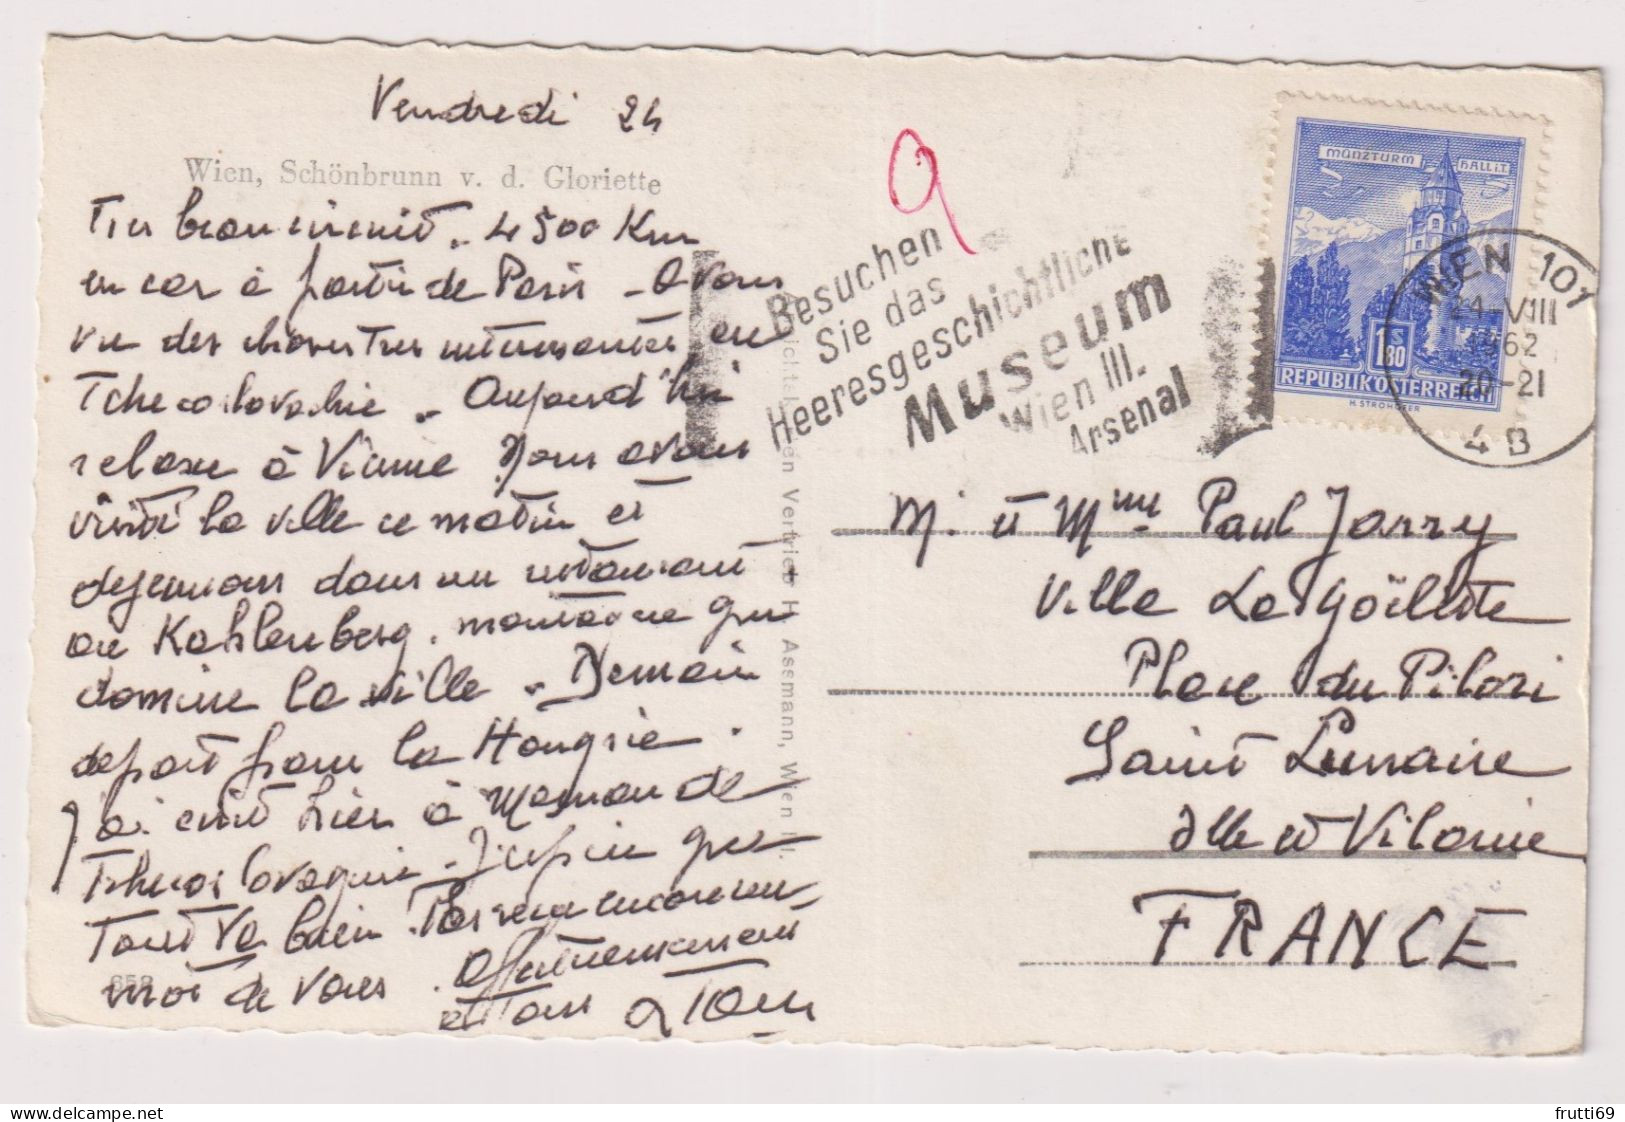 Vendredi 24
Wien, Schönbrunn v. d. Gloriette
Très beau circuit. 4500 Km
en car à partir de Paris - Avons
vu des choses très intéressantes en
Tchecoslovachie - Aujourd'hui
relaxe à Vienne Nous avons
visité la ville ce matin et
dejeunons dans un restaurant
au Kahlenberg. montagne qui
domine la ville - Demain
depart pour la Hongrie.
J'ai écrit hier à Maman de
Tchecoslovaquie - J'espère que
Tout va bien.
moi de vous. Affectueusement
et Tous
à Tous
658
Lichtbilden Vertrieb H. Assmann, Wien
9
Besuchen
Sie das
Heeresgeschichtliche
Museum
Wien III.
Arsenal
MÜNZTURM HALL i.T.
1S80
REPUBLIK ÖSTERREICH
H. STROHOFER
WIEN 101
24.-VIII
1962
20-21
4 B
M. et Mme Paul Jarry
Villa La Goëlette
Place du Pilori
Saint Lunaire
Ille et Vilaine
FRANCE
frutti69